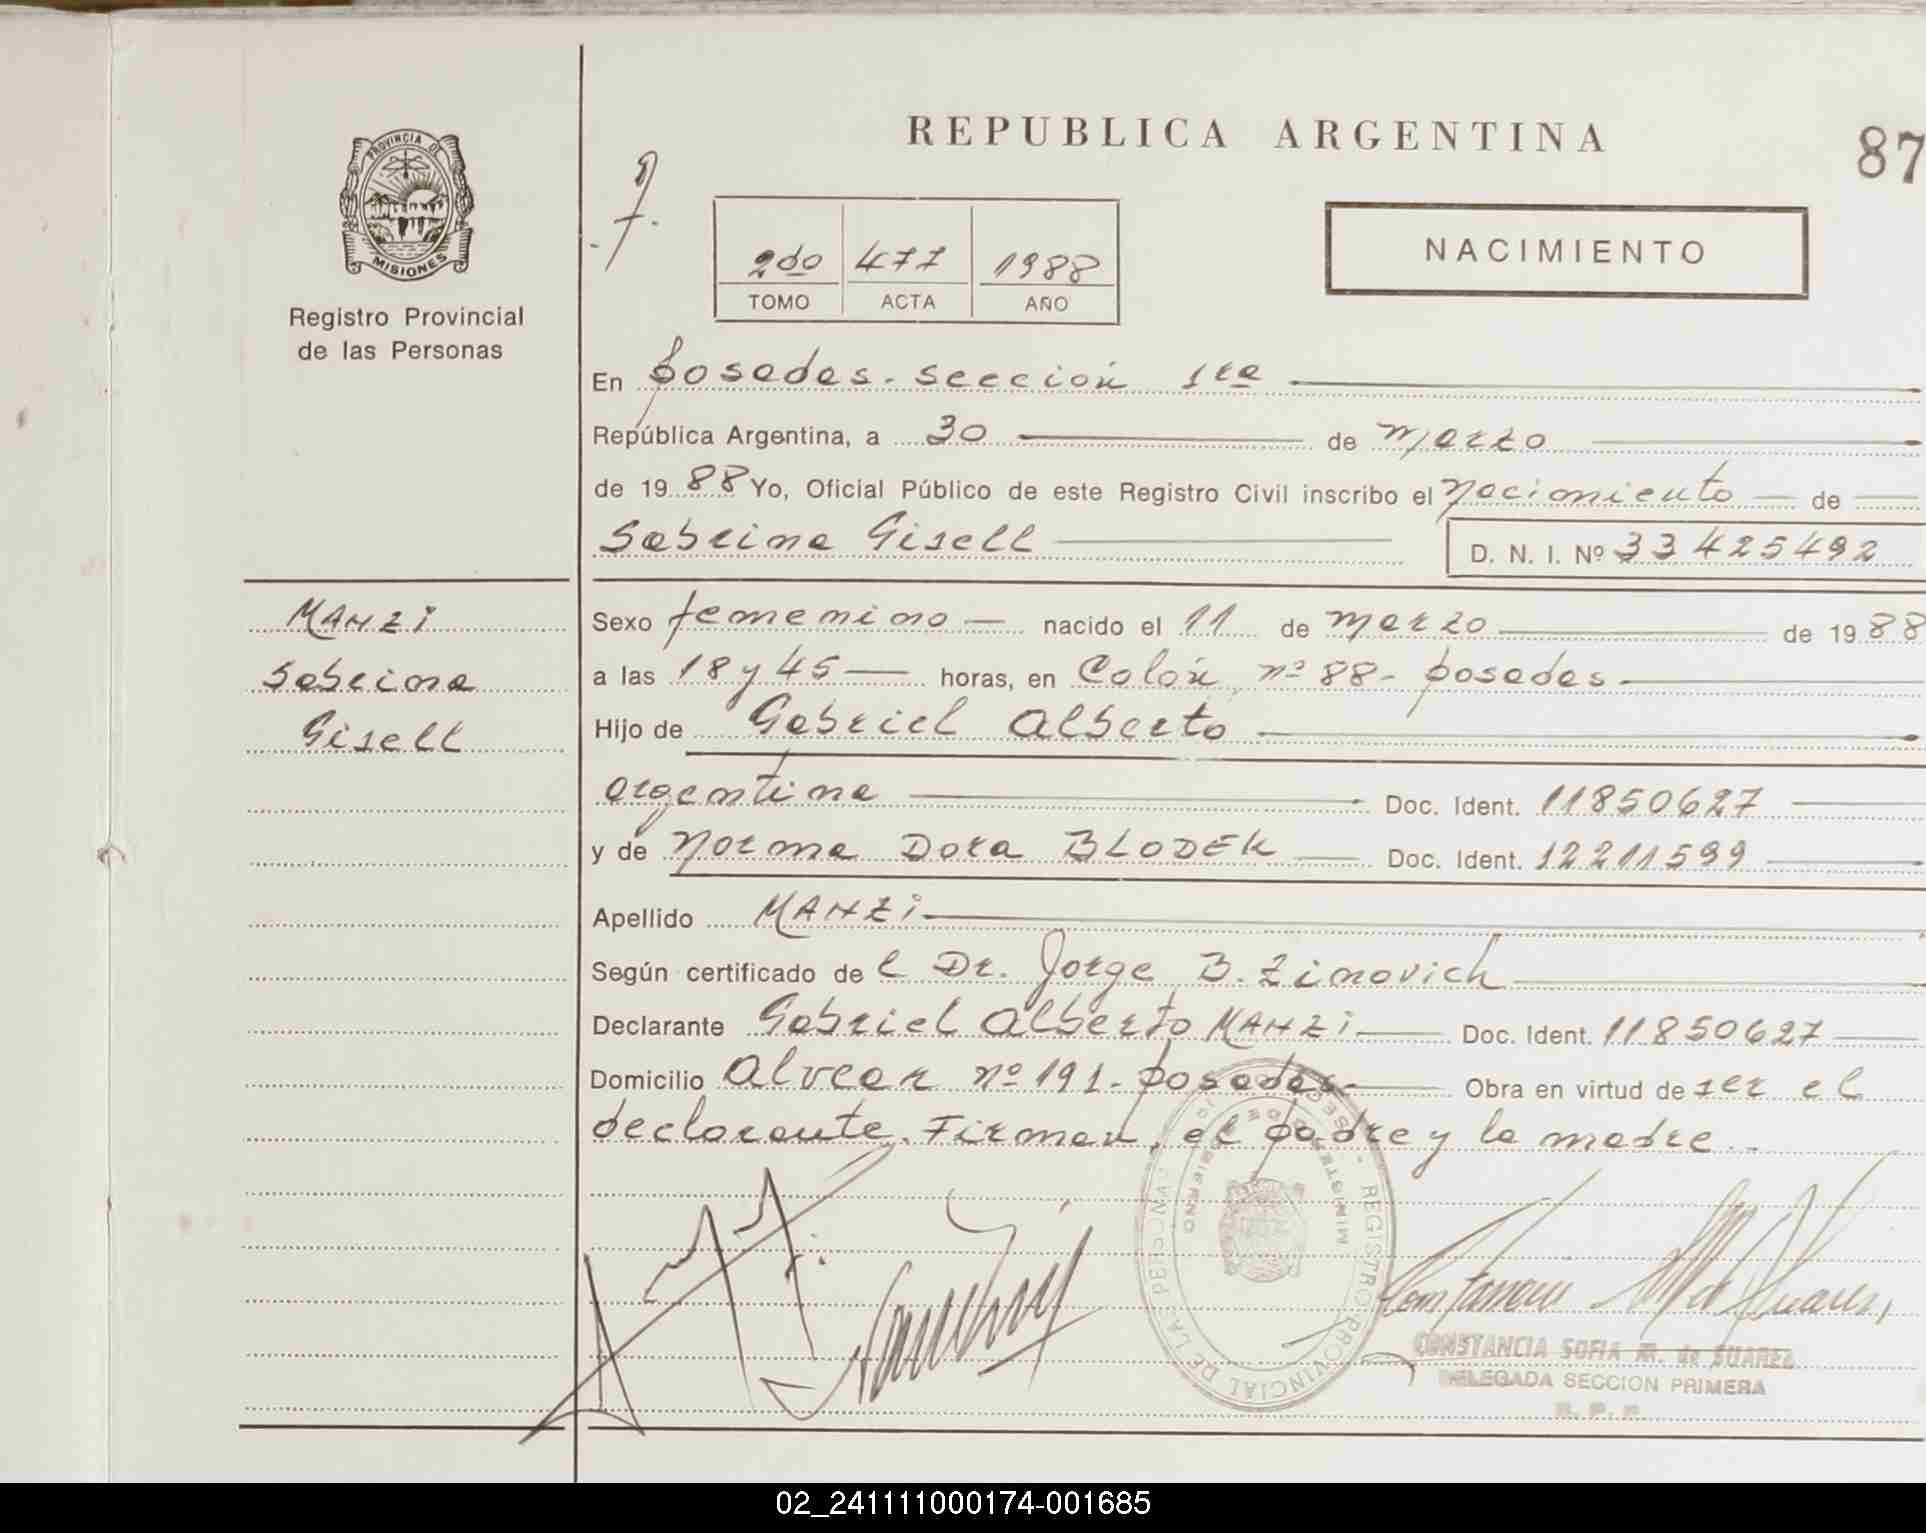 REPUBLICA ARGENTINA
87
PROVINCIA DE
MISIONES
Registro Provincial
de las Personas
2do 477 1988
TOMO ACTA AÑO
NACIMIENTO
En Posadas - sección 1ra
República Argentina, a 30 de Marzo
de 19 88 Yo, Oficial Público de este Registro Civil inscribo el Nacimiento de
Sabrina Gisell D. N. I. Nº 33425492
MANZI
Sabrina
Gisell
Sexo femenino nacido el 11 de Marzo de 19 88
a las 18 y 45 horas, en Colón nº 88 - Posadas
Hijo de Gabriel Alberto
argentina Doc. Ident. 11850627
y de Norma Dora BLODEK Doc. Ident. 12211599
Apellido MANZI
Según certificado de l Dr. Jorge B. Zinovich
Declarante Gabriel Alberto MANZI Doc. Ident. 11850627
Domicilio Alvear nº 191 - Posadas Obra en virtud de ser el
declarante. Firman, el padre y la madre.-
REGISTRO PROVINCIAL DE LAS PERSONAS
MINISTERIO DE GOBIERNO
CONSTANCIA SOFIA M. de SUAREZ
DELEGADA SECCION PRIMERA
R. P. P.
02_241111000174-001685